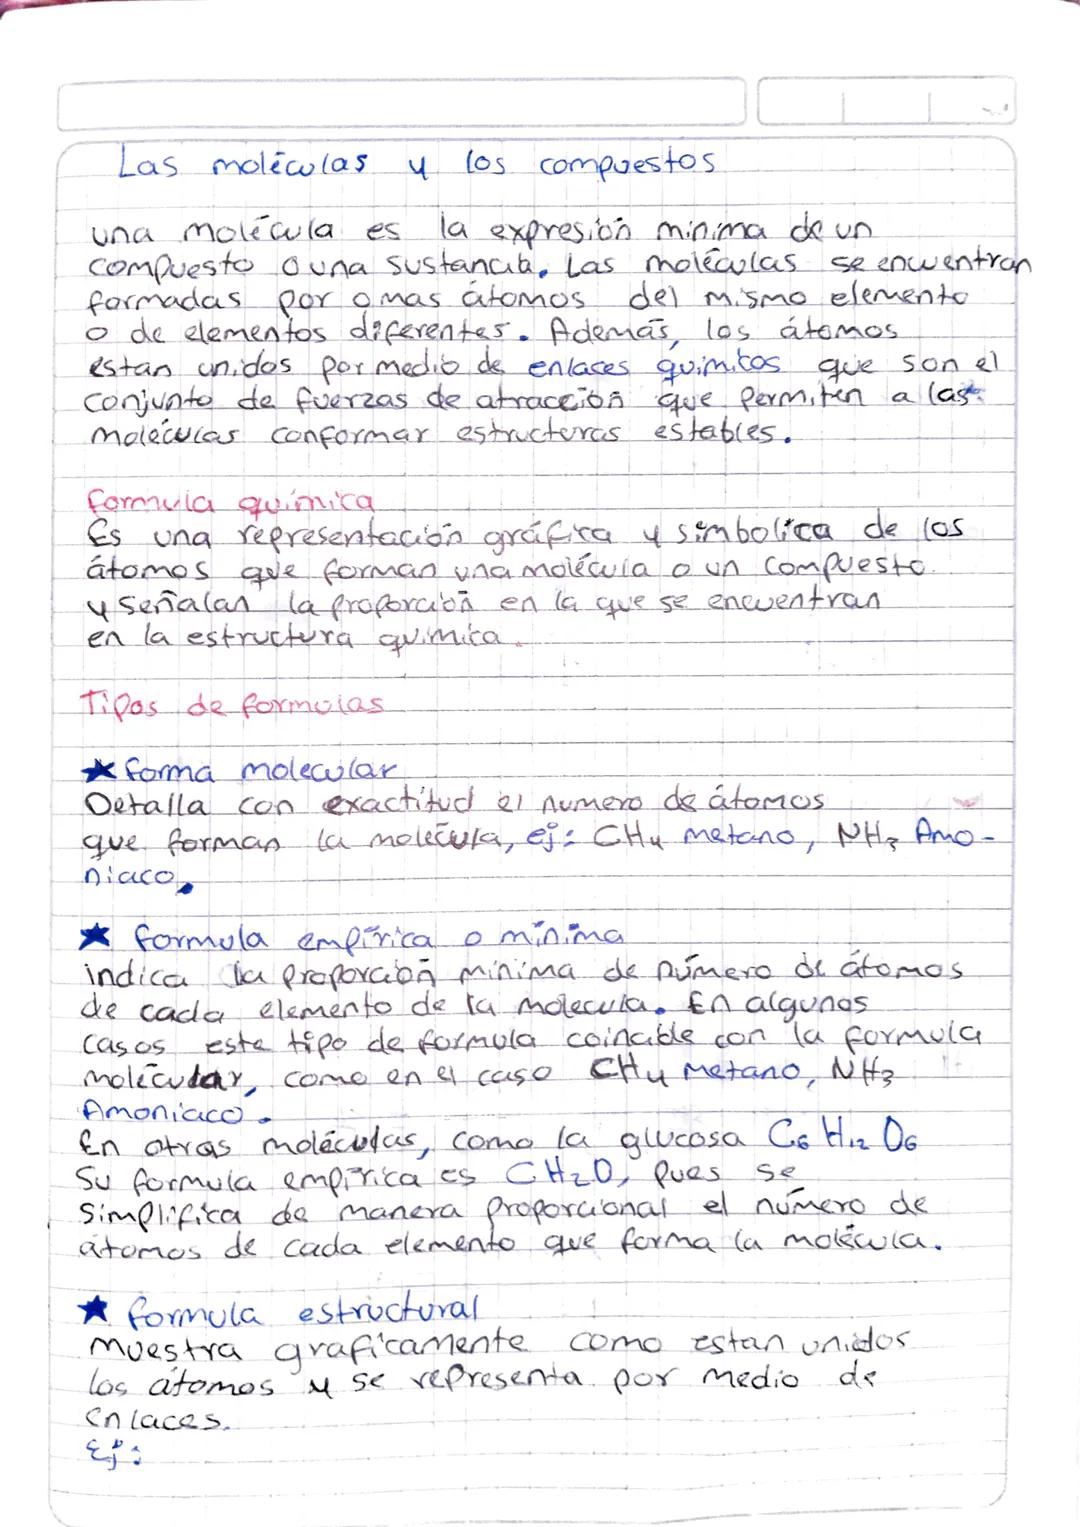 Las moléculas y los compuestos
una molécula es la expresión minima de un
compuesto o una sustancia. Las moléculas se encuentran
formadas por o mas átomos del mismo elemento
o de elementos diferentes. Además, los átomos
estan unidos por medio de enlaces químicos que son el
conjunto de fuerzas de atracción que permiten a las
moléculas conformar estructuras estables.
formula química
Es una representación gráfica y simbolica de los
átomos que forman una molécula o un compuesto
y señalan la proporción en la que se encuentran
en la estructura quimica.
Tipos de formulas
★ forma molecular
Detalla con exactitud el numero de átomos
que forman la molécula, ej: CH4 metano, NH3 Amo-
niaco.
★ formula empírica o mínima
indica la proporción minima de número de átomos
de cada elemento de la molecula. En algunos
casos este tipo de formula coincide con la formula
molécular, como en el caso CH4 Metano, NH3
Amoniaco.
En otras moléculas, como la glucosa C6 H12 O6
Su formula empírica es CH2O, pues se
simplifica de manera proporcional el número de
átomos de cada elemento que forma la molécula.
★ formula estructural
Muestra graficamente como estan unidos
los átomos y se representa por medio de
enlaces.
Ej: